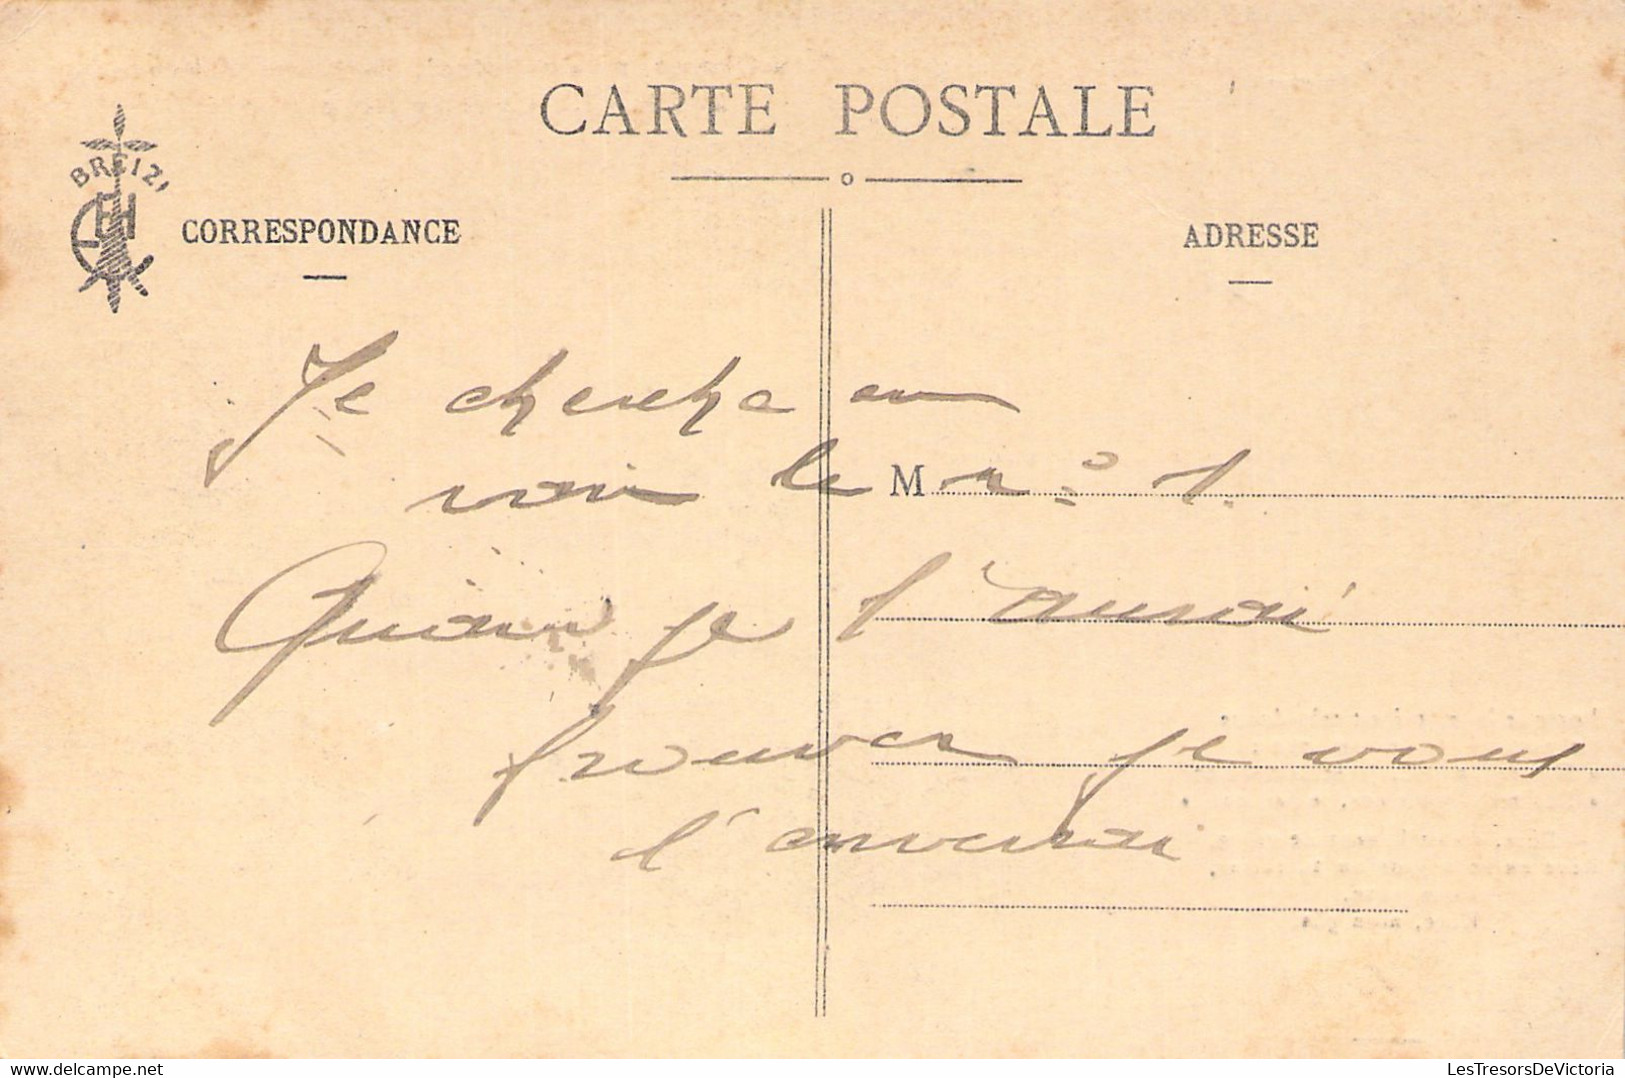 CARTE POSTALE
BREIZ
EH
CORRESPONDANCE
ADRESSE
Je cherche en
vain le M n° 1.
Quand je l'aurai
trouver je vous
l'enverai
LesTresorsDeVictoria